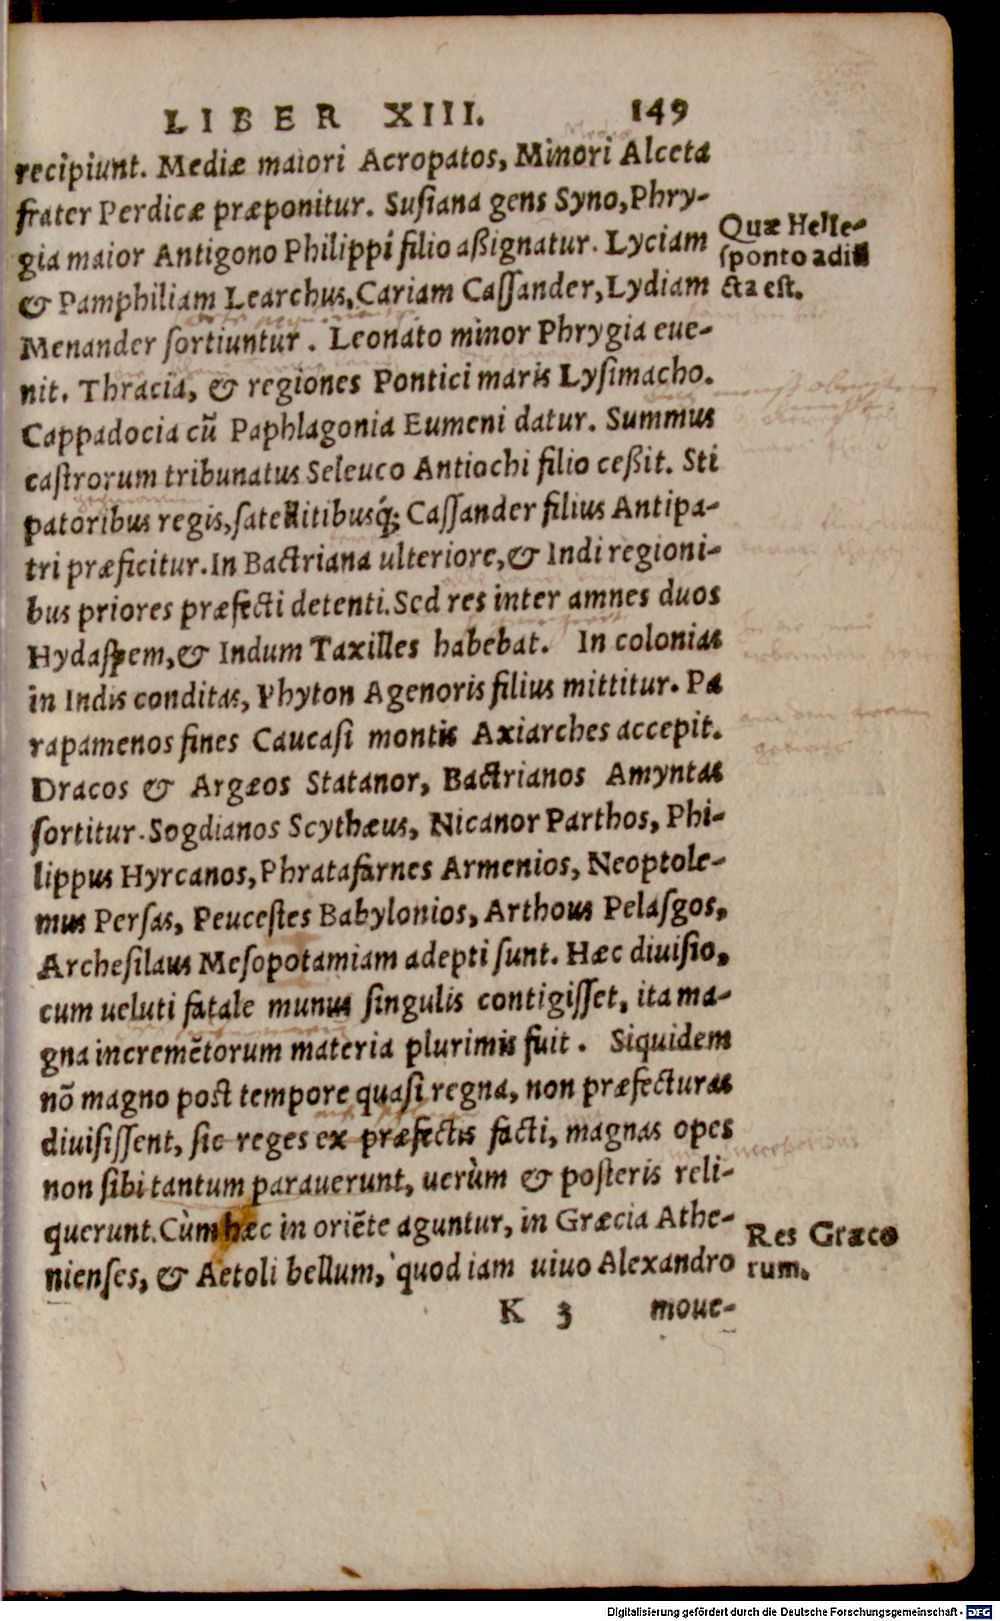 LIBER XIII. 149
recipiunt. Mediæ maiori Acropatos, Minori Alceta
frater Perdicæ præponitur. Susiana gens Syno, Phry-
gia maior Antigono Philippi filio aßignatur. Lyciam
& Pamphiliam Learchus, Cariam Cassander, Lydiam
Menander sortiuntur. Leonato minor Phrygia eue-
nit. Thracia, & regiones Pontici maris Lysimacho.
Cappadocia cū Paphlagonia Eumeni datur. Summus
castrorum tribunatus Seleuco Antiochi filio ceßit. Sti
patoribus regis, satellitibusq́; Cassander filius Antipa-
tri præficitur. In Bactriana ulteriore, & Indi regioni-
bus priores præfecti detenti. Sed res inter amnes duos
Hydaspem, & Indum Taxilles habebat. In colonias
in Indis conditas, Phyton Agenoris filius mittitur. Pa
rapamenos fines Caucasi montis Axiarches accepit.
Dracos & Argæos Statanor, Bactrianos Amyntas
sortitur. Sogdianos Scythæus, Nicanor Parthos, Phi-
lippus Hyrcanos, Phratafarnes Armenios, Neoptole-
mus Persas, Peucestes Babylonios, Arthous Pelasgos,
Archesilaus Mesopotamiam adepti sunt. Hæc diuisio,
cum ueluti fatale munus singulis contigisset, ita ma-
gna incremētorum materia plurimis fuit. Siquidem
nō magno post tempore quasi regna, non præfecturas
diuisissent, sic reges ex præfectis facti, magnas opes
non sibi tantum parauerunt, uerùm & posteris reli-
querunt. Cùm hæc in oriēte aguntur, in Græcia Athe-
nienses, & Aetoli bellum, quod iam uiuo Alexandro
K 3 moue-
Quæ Helle-
sponto adiū
cta est.
Res Græco
rum.
Digitalisierung gefördert durch die Deutsche Forschungsgemeinschaft - DFG